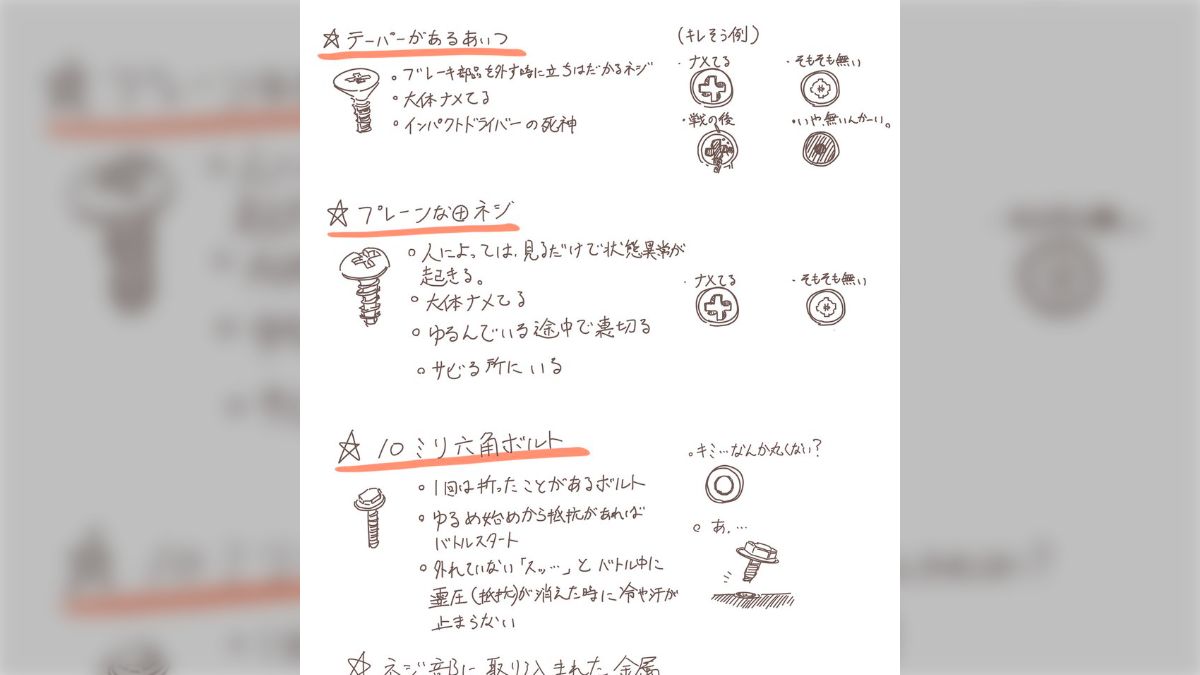 ☆テーパーがあるあいつ
。ブレーキ部品を外す時に立ちはだかるネジ
。大体ナメてる
。インパクトドライバーの死神
(キレそう例)
・ナメてる
・そもそも無い
・戦の後
・いや、無いんかーい。
☆プレーンな⊕ネジ
。人によっては、見るだけで状態異常が
起きる。
。大体ナメてる
。ゆるんでいる途中で裏切る
。サビる所にいる
・ナメてる
・そもそも無い
☆10ミリ六角ボルト
。1回は折ったことがあるボルト
。ゆるめ始めから抵抗があれば
バトルスタート
。外れていない「スッ…」とバトル中に
霊圧(抵抗)が消えた時に冷や汗が
止まらない
。キミ…なんか丸くない?
。あ…
☆ネジ部に取り込まれた金属